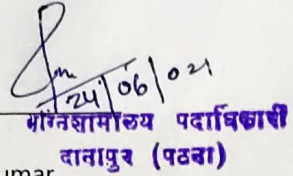 24/06/021
अग्निशामालय पदाधिकारी
दानापुर (पटना)
umar